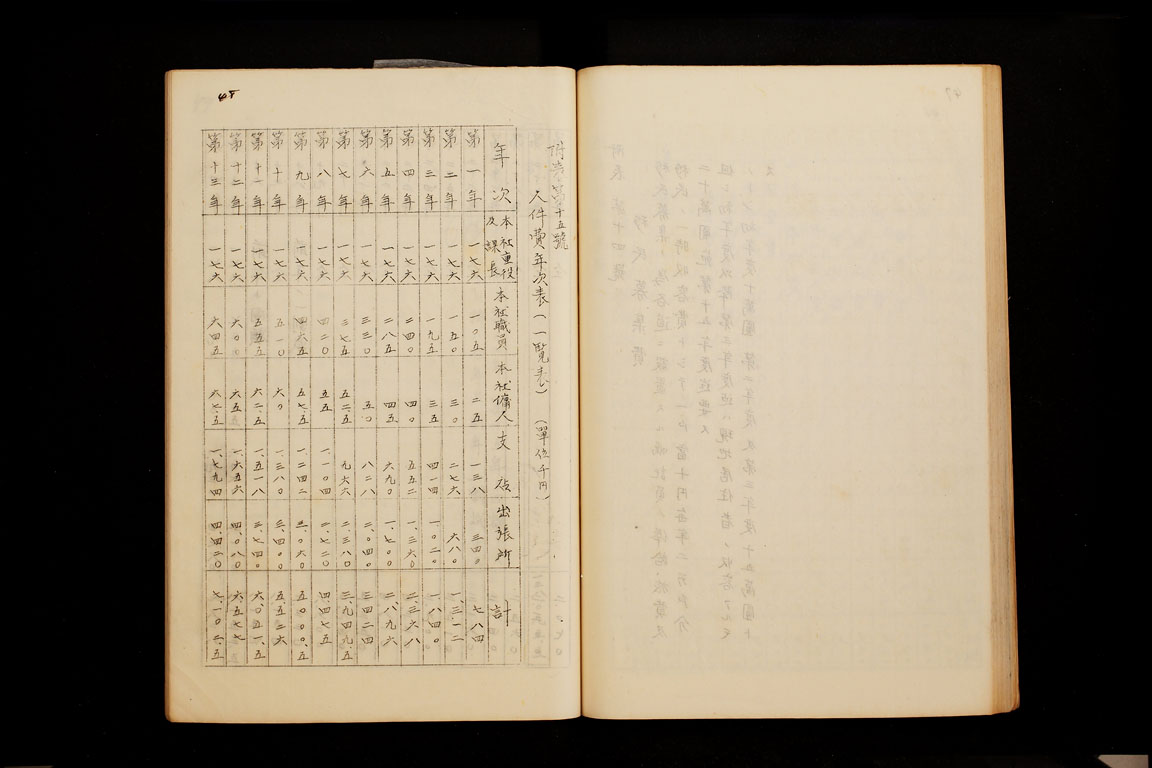 48
附表第十五號
人件費年次表(一覧表) (單位千円)
年次 本社重役及課長 本社職員 本社傭人 支店 出張所 計
第一年 一七六 一〇五 二五 一三八 三四〇 七八四
第二年 一七六 一五〇 三〇 二七六 六八〇 一、三一二
第三年 一七六 一九五 三五 四一四 一、〇二〇 一、八四〇
第四年 一七六 二四〇 四〇 五五二 一、三六〇 二、三六八
第五年 一七六 二八五 四五 六九〇 一、七〇〇 二、八九六
第六年 一七六 三三〇 五〇 八二八 二、〇四〇 三四二四
第七年 一七六 三七五 五二、五 九六六 二、三八〇 三、九四九、五
第八年 一七六 四二〇 五五 一、一〇四 二、七二〇 四、四七五
第九年 一七六 四六五 五七、五 一、二四二 三、〇六〇 五〇〇〇、五
第十年 一七六 五一〇 六〇 一、三八〇 三、四〇〇 五、五二六
第十一年 一七六 五五五 六二、五 一、五一八 三、七四〇 六、〇五一、五
第十二年 一七六 六〇〇 六五 一、六五六 四、〇八〇 六、五七七
第十三年 一七六 六四五 六七、五 一、七九四 四、四二〇 七、一〇二、五